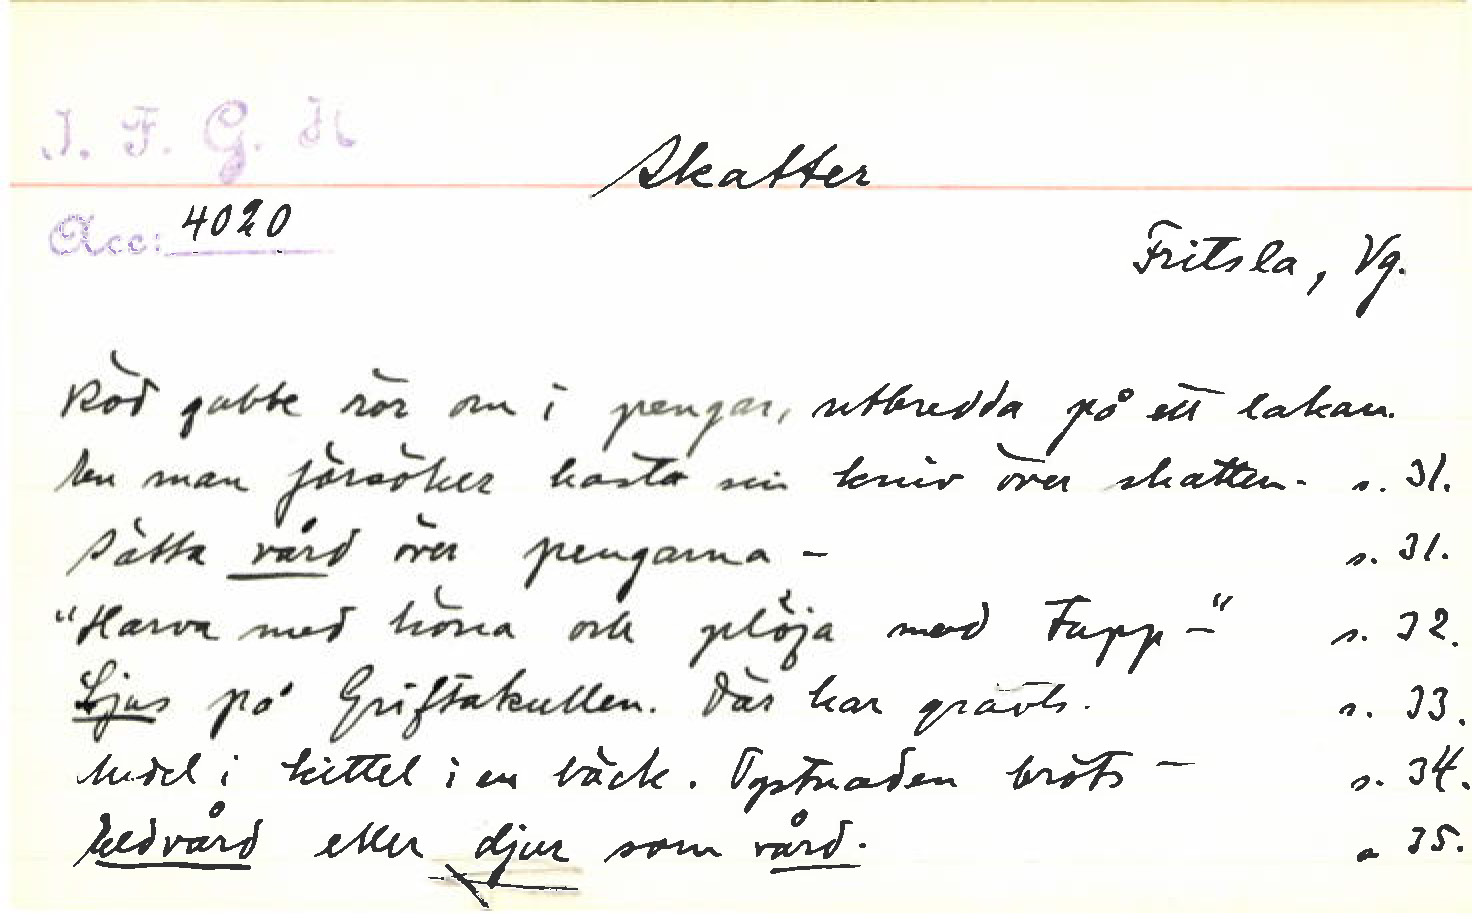 I. F. G. H
Skatter
Acc: 4020
Fritsla, Vg.
Röd gubbe rör om i pengar, utbredda på ett lakan.
En man försöker kasta sin kniv över skatten. s. 31.
Sätta vård över pengarna – s. 31.
"Harva med höna och plöja med Tupp –" s. 32.
Ljus på Griftakullen. Där har grävts. s. 33.
i kittel i en bäck. Tystnaden bröts – s. 34.
Eldvård eller djur som vård. s 35.